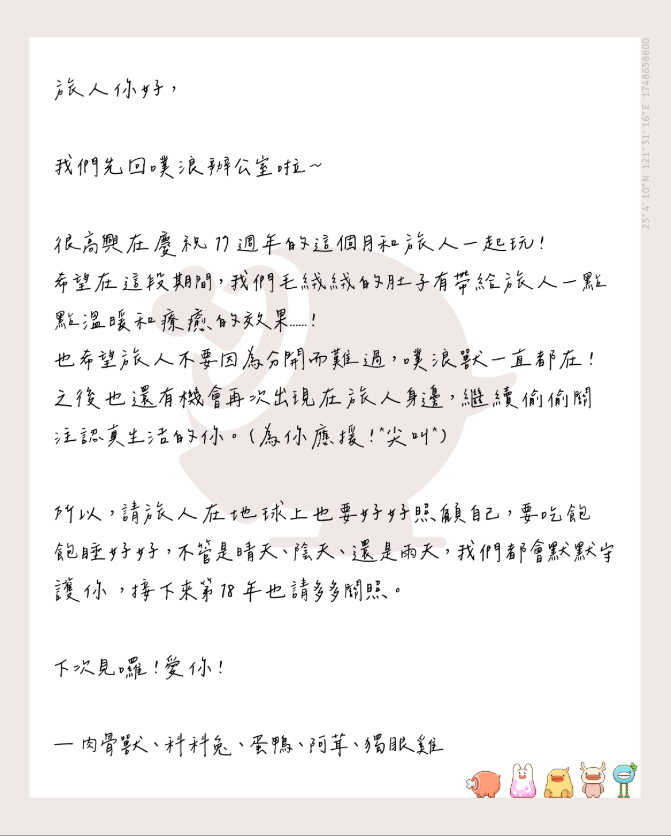 旅人你好，
我們先回噗浪辦公室啦～
很高興在慶祝17週年的這個月和旅人一起玩！
希望在這段期間，我們毛絨絨的肚子有帶給旅人一點
點溫暖和療癒的效果……！
也希望旅人不要因為分開而難過，噗浪獸一直都在！
之後也還有機會再次出現在旅人身邊，繼續偷偷關
注認真生活的你。(為你應援！*尖叫*)
所以，請旅人在地球上也要好好照顧自己，要吃飽
飽睡好好，不管是晴天、陰天、還是雨天，我們都會默默守
護你，接下來第18年也請多多關照。
下次見囉！愛你！
— 肉骨獸、科科兔、蛋鴨、阿茸、獨眼雞
25°4'10"N 121°31'16"E 1748658600